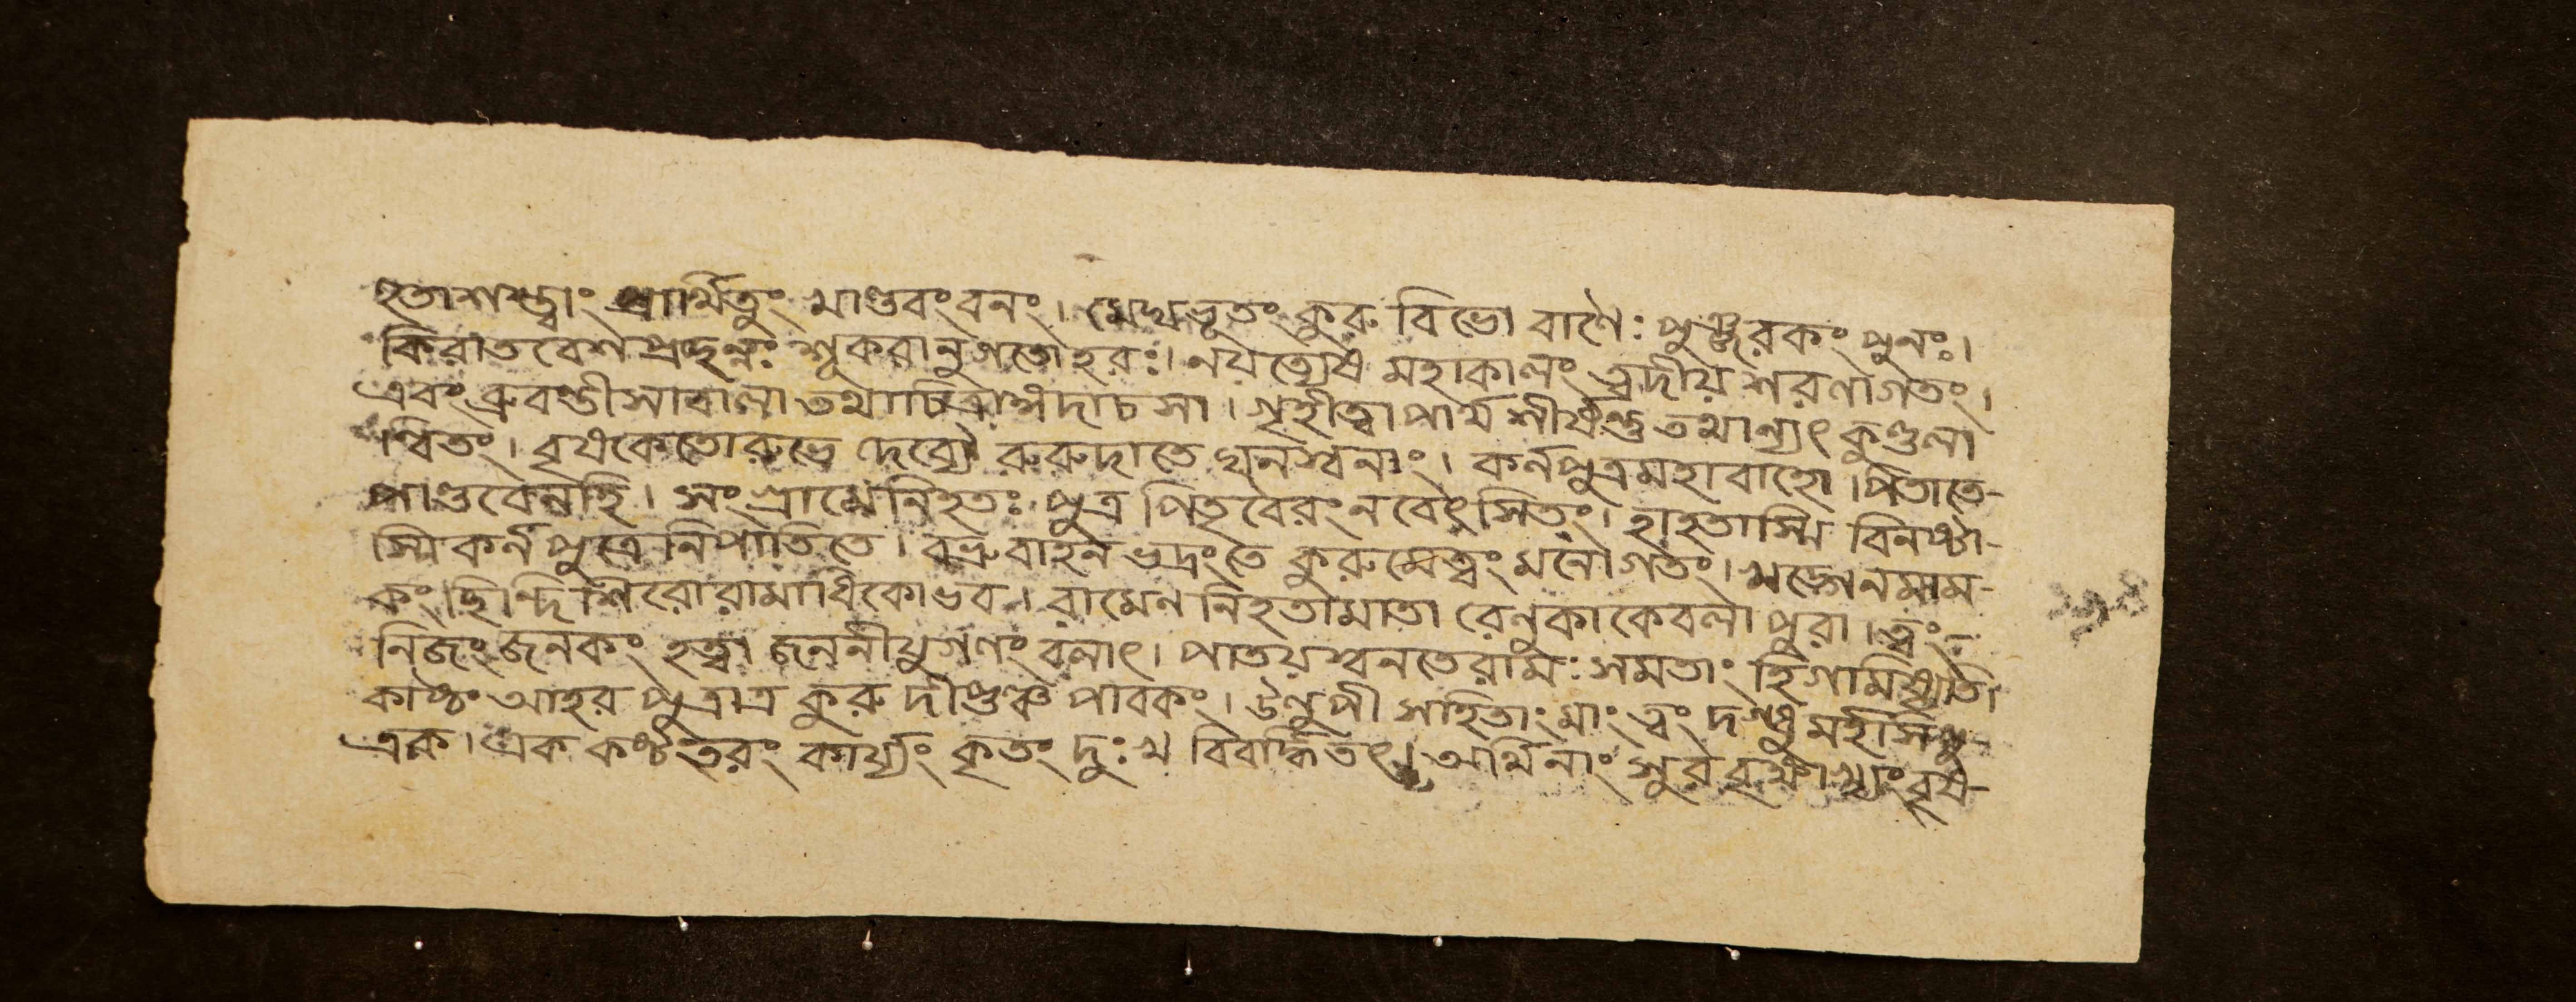 হুতাশস্ত্বাং প্রার্থিতুং খাণ্ডবং বনং। মেঘভূতং কুরু বিভো বাণৈঃ পুঞ্জরকং পুনঃ।
কিরাতবেশপ্রছন্নঃ শূকরানুগতো হরঃ। নয়ত্যেষ মহাকালং ত্বদীয় শরণাগতং।
এবং ব্রুবন্তীসাবালা তথাচিত্রাঙ্গদাচ সা। গৃহীত্বা পার্থ শীর্ষন্তু তথান্যৎ কুণ্ডলা
ন্বিতং। বৃষকেতোরুভে দেব্যৌ রুরুদাতে ঘনস্বনাং। কর্নপুত্রমহাবাহো পিতাতে-
পাণ্ডবেনহি। সংগ্রামেনিহতঃ পুত্র পিতৃবৈরং নবেৎসিতং। হাহতাস্মি বিনষ্টা-
স্মি কর্নপুত্রে নিপাতিতে। বভ্রুবাহন ভদ্রংতে কুরুষ্মেত্বং মনোগতং। খড্গেনমাম-
কং ছিন্দি শিরোরামাধিকোভব। রামেন নিহতামাতা রেনুকা কেবলা পুরা। ত্বং-
নিজং জনকং হত্বা জননীযুগণং বনাৎ। পাতয়স্বনতেরামঃ সমতাং হি গামিষ্যতি
কাষ্ঠং আহর পুত্রাত্র কুরু দীপ্তঞ্চ পাবকং। উলুপী সহিতাং মাং ত্বং দগ্ধু মর্হসিপু-
ত্রক। এক কর্ষ্টতরং কার্য্যং কৃতং দুঃখ বিবর্দ্ধিতং। অর্থিনাং সুরবৃক্ষাখ্যং বৃষ-